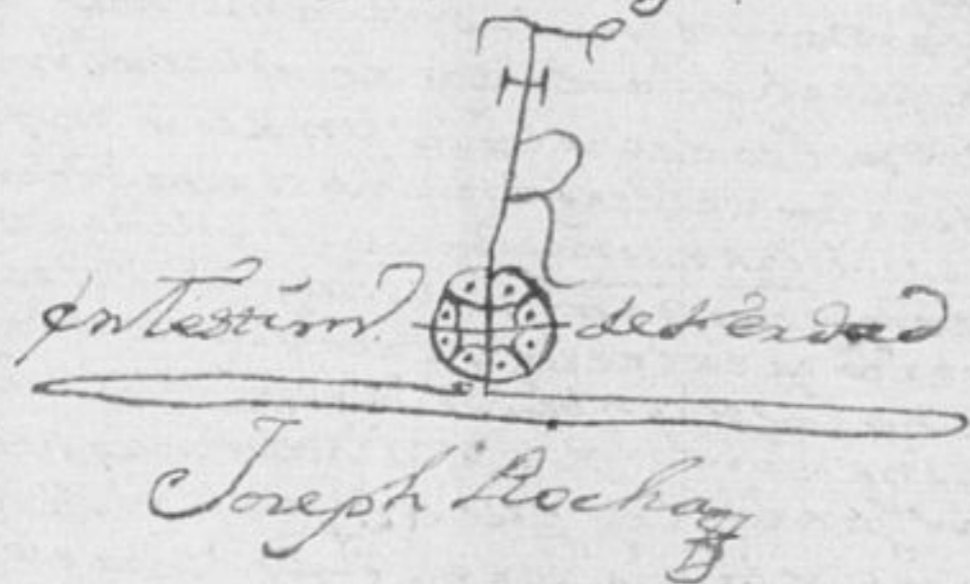 en Testim.º de Verdad
Joseph Rocha